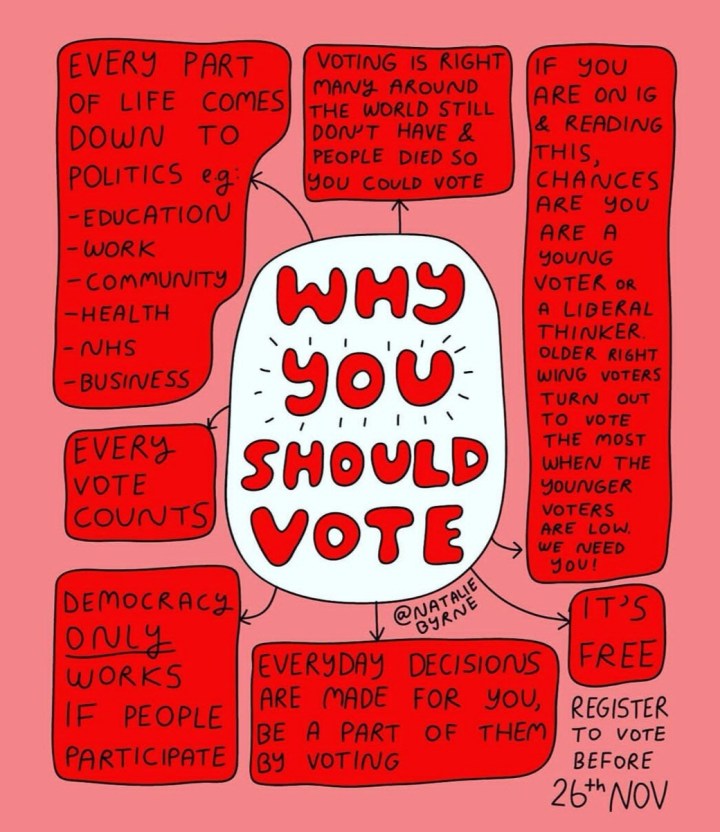 WHY
YOU
SHOULD
VOTE
EVERY PART
OF LIFE COMES
DOWN TO
POLITICS eg:
-EDUCATION
-WORK
-COMMUNITY
-HEALTH
-NHS
-BUSINESS
VOTING IS RIGHT
MANY AROUND
THE WORLD STILL
DON'T HAVE &
PEOPLE DIED SO
YOU COULD VOTE
IF YOU
ARE ON IG
& READING
THIS,
CHANCES
ARE YOU
ARE A
YOUNG
VOTER OR
A LIBERAL
THINKER.
OLDER RIGHT
WING VOTERS
TURN OUT
TO VOTE
THE MOST
WHEN THE
YOUNGER
VOTERS
ARE LOW.
WE NEED
YOU!
EVERY
VOTE
COUNTS
DEMOCRACY
ONLY
WORKS
IF PEOPLE
PARTICIPATE
EVERYDAY DECISIONS
ARE MADE FOR YOU,
BE A PART OF THEM
BY VOTING
IT'S
FREE
@NATALIE
BYRNE
REGISTER
TO VOTE
BEFORE
26th NOV